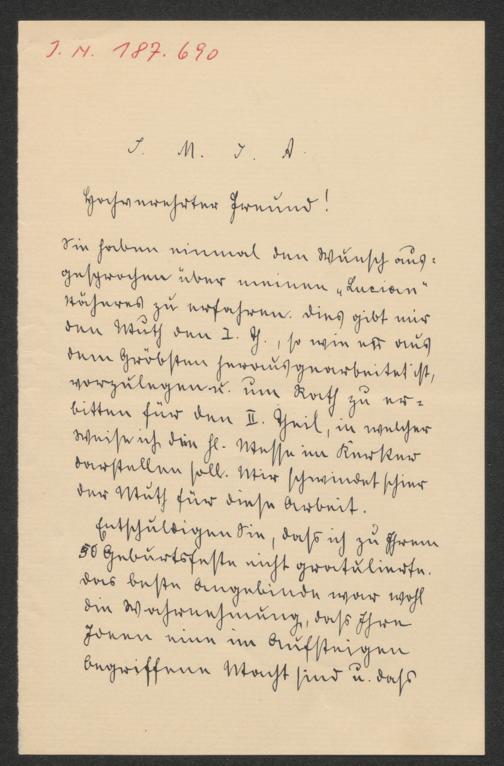 J. N. 187.690
J. M. J. A.
Hochverehrter Freund!
Sie haben einmal den Wunsch aus-
gesprochen über meinen „Lucian"
Näheres zu erfahren. Dies gibt mir
den Muth den I. Th., so wie er aus
dem Gröbsten herausgearbeitet ist,
vorzulegen u. um Rath zu er-
bitten für den II. Theil, in welcher
Weise ich die hl. Messe im Kerker
darstellen soll. Mir schwindet schier
der Muth für diese Arbeit.
Entschuldigen Sie, dass ich zu Ihrem
50 Geburtsfeste nicht gratulierte.
Das beste Angebinde war wohl
die Wahrnehmung, dass Ihre
Ideen eine im Aufsteigen
begriffene Macht sind u. dass